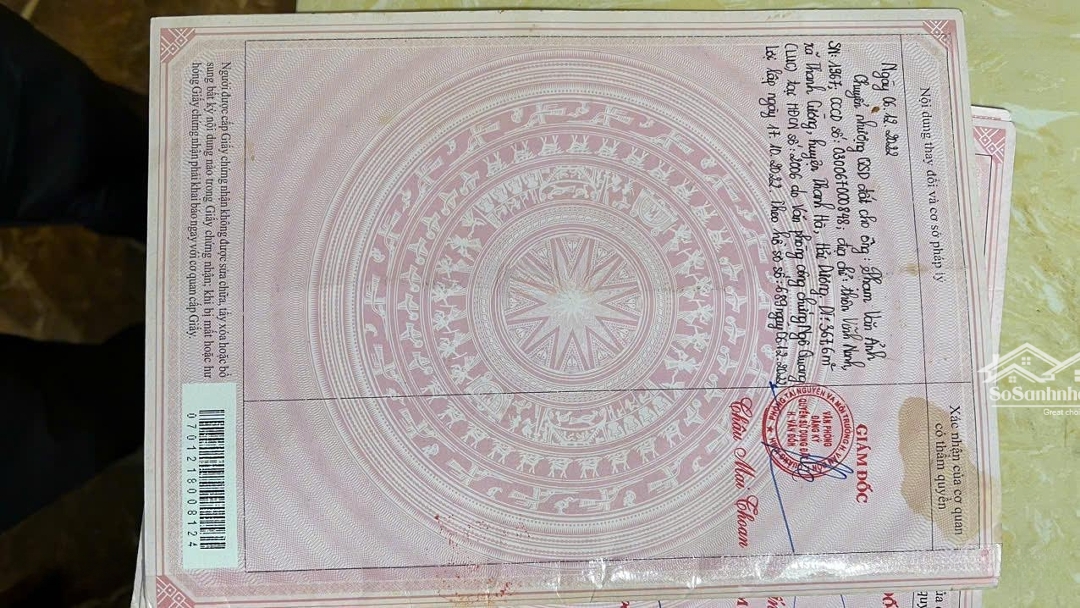 Nội dung thay đổi và cơ sở pháp lý
Xác nhận của cơ quan
có thẩm quyền
Ngày 06.12.2022
Chuyển nhượng QSD đất cho ông: Phạm Văn Ảnh
SN: 1967; CCCD số: 030067000848; địa chỉ: thôn Vĩnh Ninh,
xã Thanh Cường, huyện Thanh Hà, Hải Dương. DT: 367,6m²
(LUC) tại HĐCN số: 2006 do Văn phòng công chứng Ngô Quang
Lợi lập ngày 17.10.2022. Theo hồ sơ số: 689 ngày 06.12.2022
GIÁM ĐỐC
PHÒNG TÀI NGUYÊN VÀ MÔI TRƯỜNG H. VÂN ĐỒN
VĂN PHÒNG
ĐĂNG KÝ
QUYỀN SỬ DỤNG ĐẤT
H. VÂN ĐỒN
Châu Mai Thoan
Người được cấp Giấy chứng nhận không được sửa chữa, tẩy xóa hoặc bổ
sung bất kỳ nội dung nào trong Giấy chứng nhận; khi bị mất hoặc hư
hỏng Giấy chứng nhận phải khai báo ngay với cơ quan cấp Giấy.
0701218008124
SoSanhnhà
Great choi